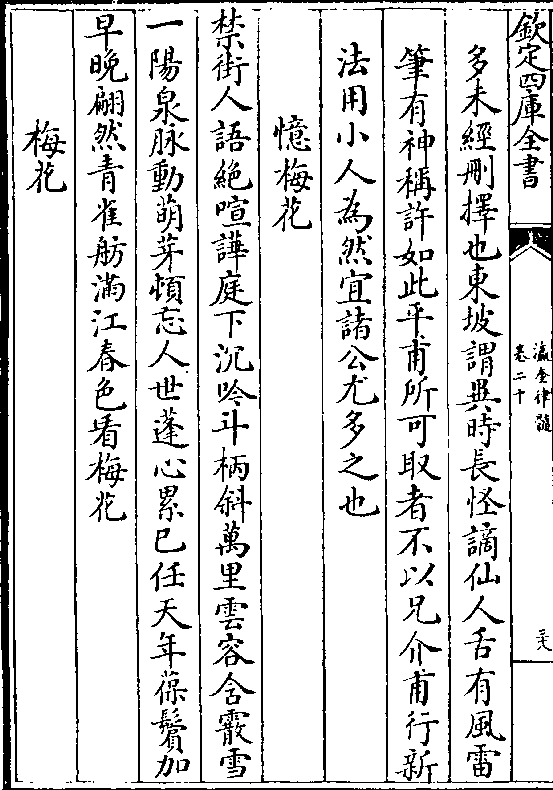 欽定四庫全書
瀛奎律髓
卷二十
三六
多未經刪擇也東坡謂異時長怪謫仙人舌有風雷
筆有神稱許如此平甫所可取者不以兄介甫行新
法用小人為然宜諸公尤多之也
憶梅花
禁街人語絶喧譁庭下沉吟斗柄斜萬里雲容含霰雪
一陽泉脉動萌芽頓忘人世蓬心累已任天年葆鬢加
早晚翩然青雀舫滿江春色看梅花
梅花